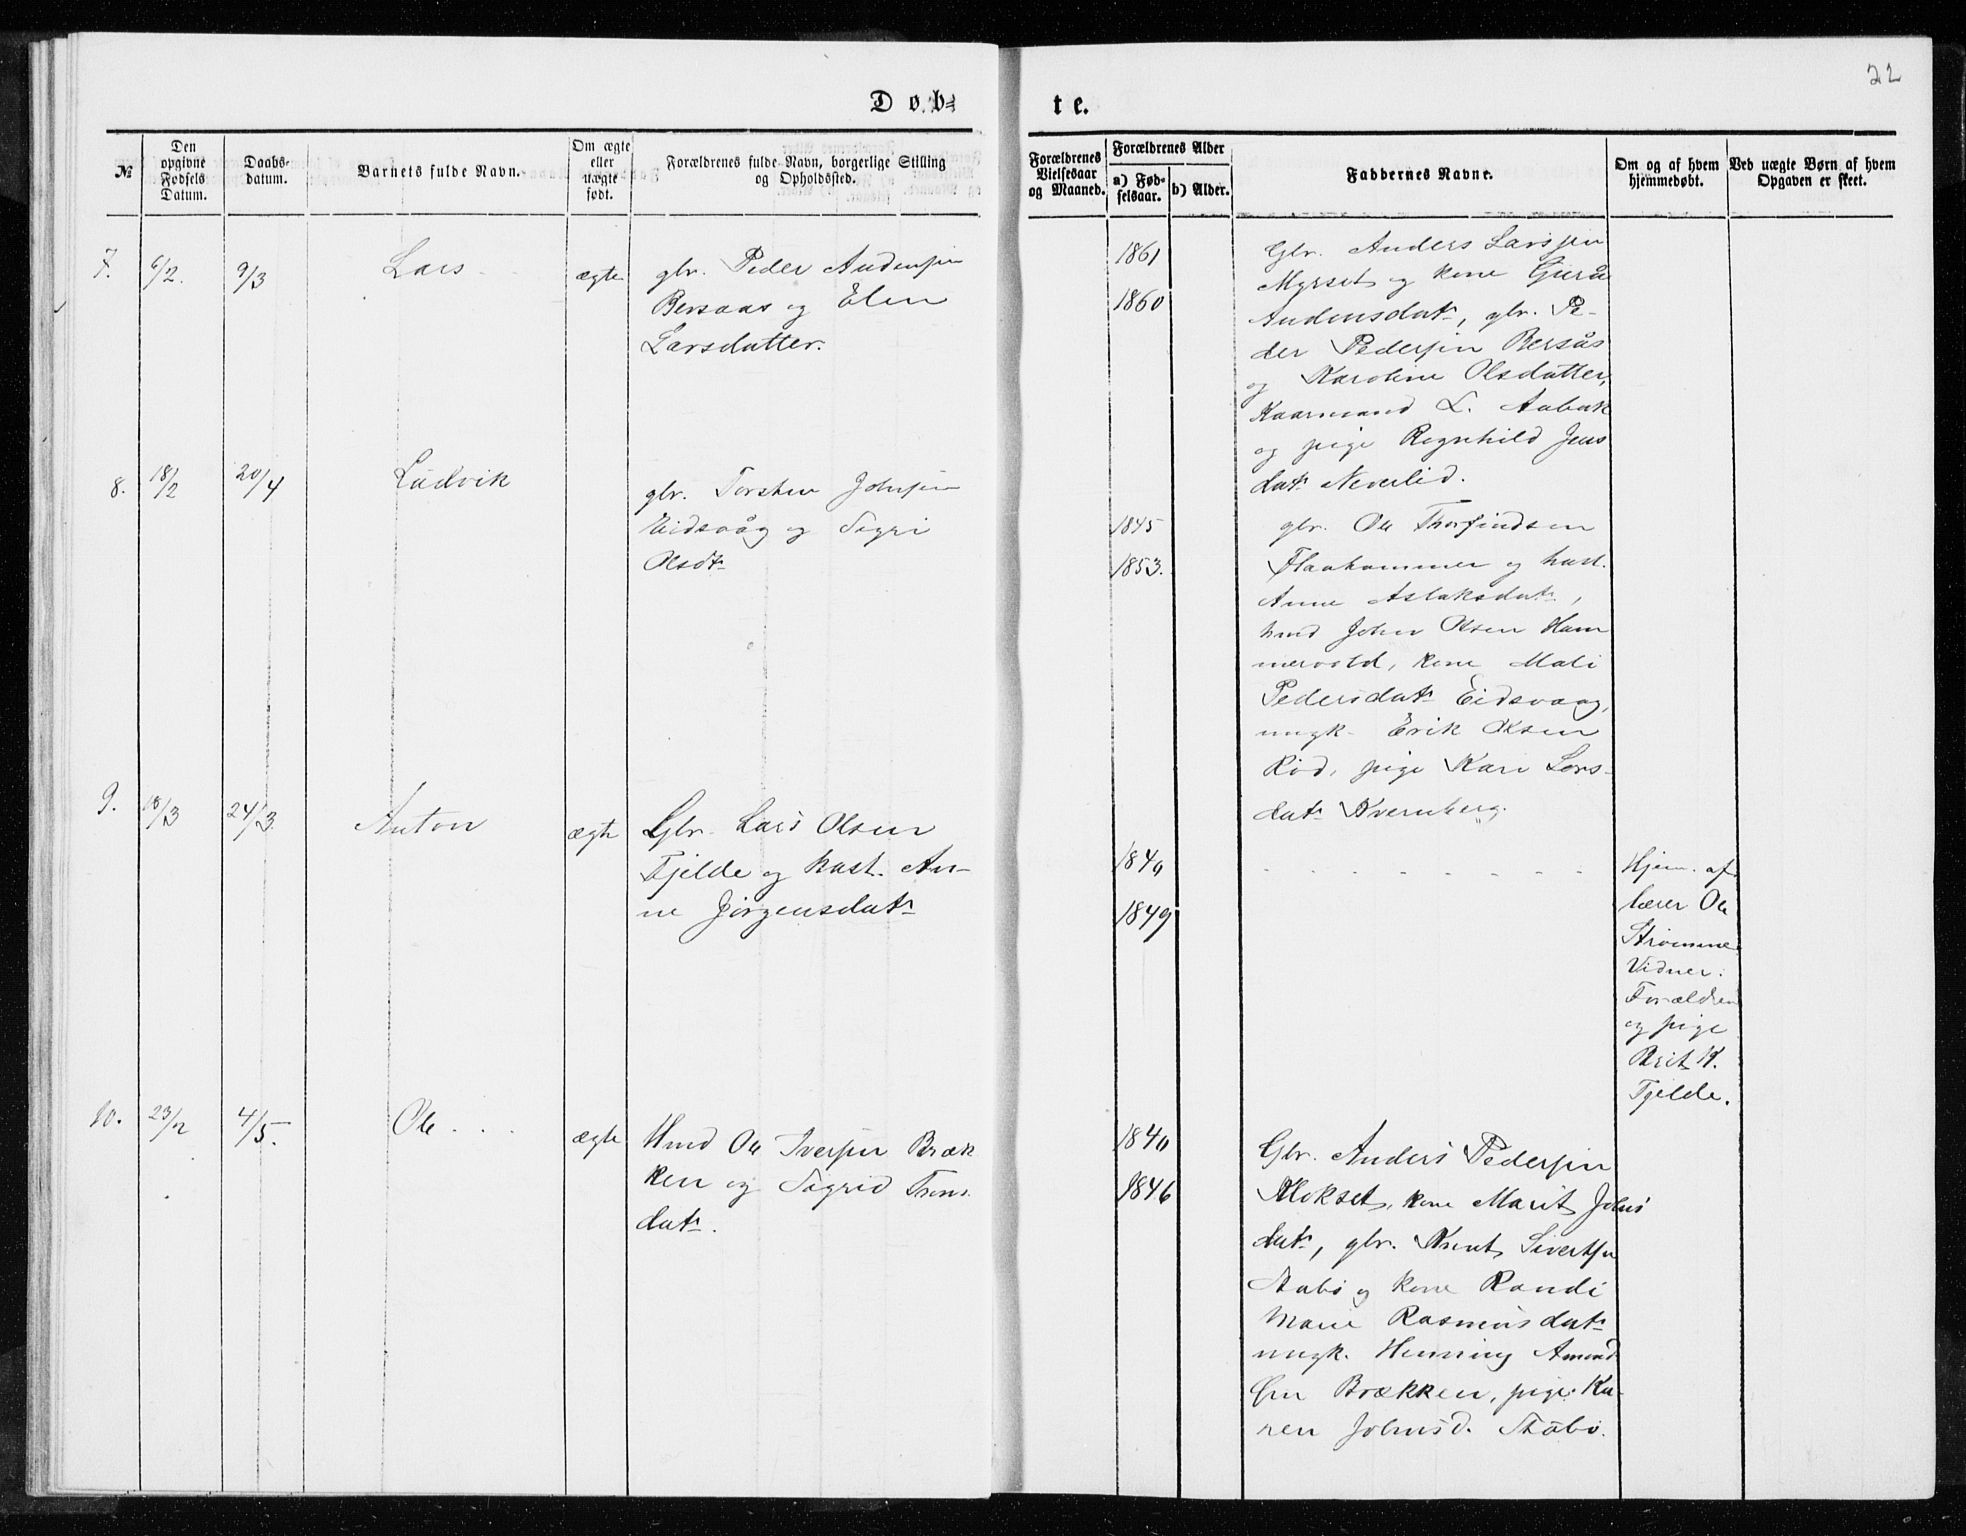 22
Døb-
te.
№
Den opgivne Fødsels Datum.
Daabs-datum.
Barnets fulde Navn.
Om ægte eller uægte født.
Forældrenes fulde Navn, borgerlige Stilling og Opholdssted.
Forældrenes Vielsesaar og Maaned.
Forældrenes Alder
a) Fød-selsaar.
b) Alder.
Faddernes Navne.
Om og af hvem hjemmedøbt.
Ved uægte Børn af hvem Opgaven er skeet.
7.
6/2.
9/3
Lars
ægte
gbr. Peder Andersen
Bersaas og Elen
Larsdatter.
1861
1860
Gbr. Anders Larssen
Myrset og kone Gurå
Andersdatr, gbr. Pe-
der Pedersen Bersås
og Karoline Olsdatter,
Kaarmand L. Aabak
og pige Ragnhild Jens
datr Neverlid.
8.
18/2
20/4
Ludvik
gbr. Torsten Johnsen
Eidsvåg og Sigri
Olsdtr
1845
1853.
gbr. Ole Thorfindsen
Flaahammer og hust.
Anne Aslaksdatr,
hmd John Olsen Ham
mervold, kone Mali
Pedersdatr Eidsvaag,
ungk. Erik Olsen
Rød, pige Kari Lars-
datr Kvernberg.
9.
18/3
24/3.
Anton
ægte
Gbr. Lars Olsen
Tjelde og hust. An-
ne Jørgensdatr
1840
1849
Hjem. af
lærer Ole
Strømme
Vidner:
Forældrene
og pige
Brit K.
Tjelde.
10.
23/2
4/5.
Ole
ægte
Hmd Ole Iversen Bræk
ken og Sigrid Trons
datr.
1840
1846
Gbr. Anders Pedersen
Klokset, kone Marit Johns
datr, gbr. Knut Sivertsen
Stabø og kone Randi
Marie Rasmusdatr
ungk. Henning Amund
sen Brækken, pige Ka-
ren Johnsd. Stabø.